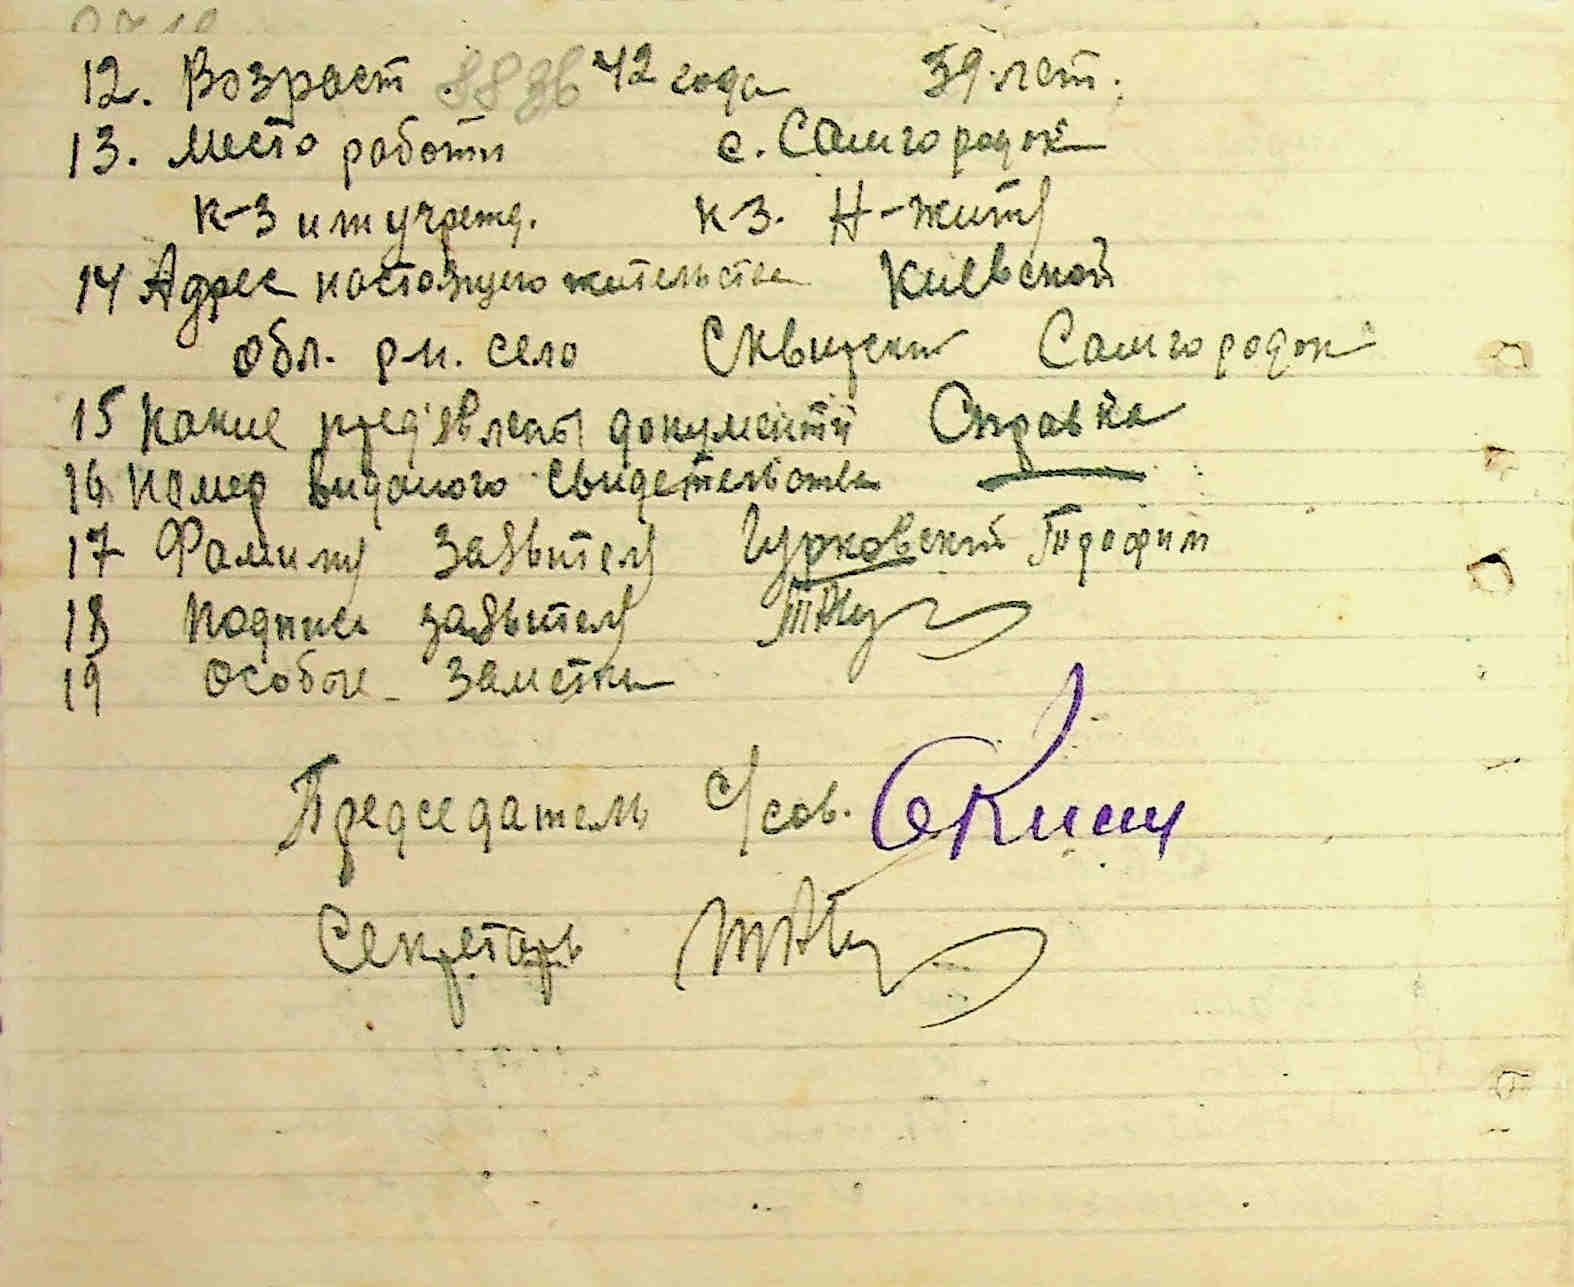 12. Возраст 42 года 39 лет.
13. Место работи с. Самгородок
к-з или учрежд. к-з. Н-життя
14 Адрес настоящего жительства Киевской
обл. р-н. село Сквирски Самгородок
15 Какие пред'явлены документи Справка
16. Номер виданого свидетельства
17 Фамилия заявителя Гурковский
18 Подпись заявителя
19 Особые заметки
Председатель с/сов.
Секретарь